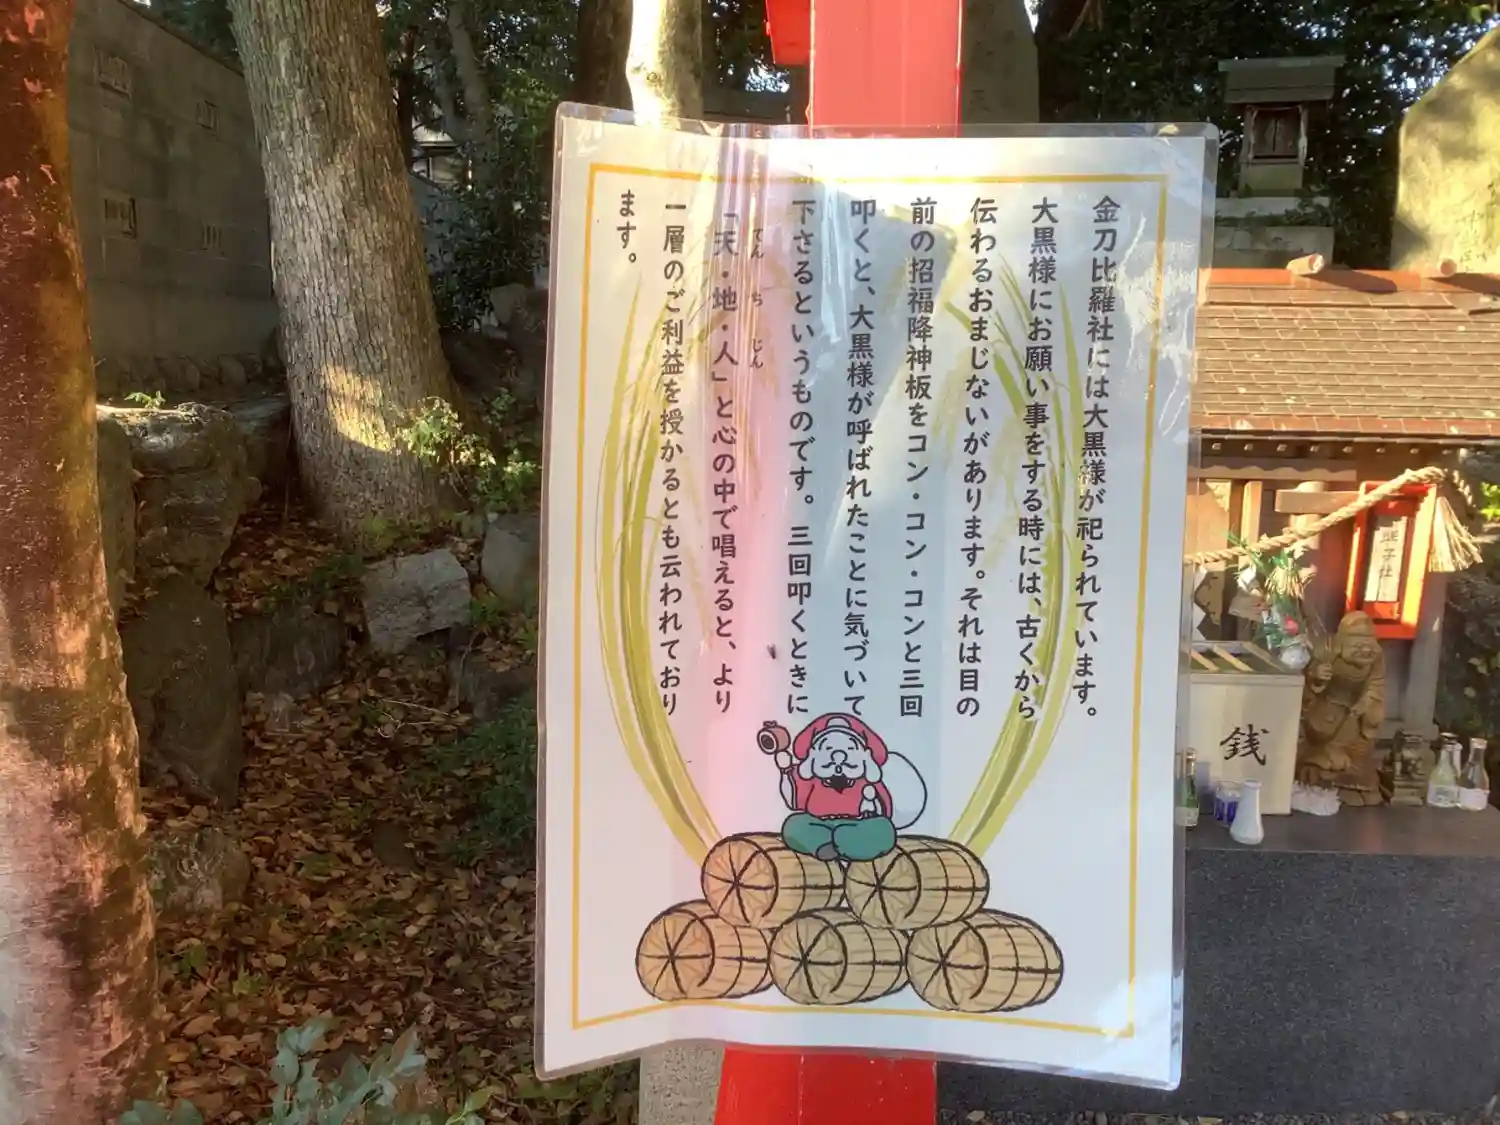 金刀比羅社には大黒様が祀られています。
大黒様にお願い事をする時には、古くから
伝わるおまじないがあります。それは目の
前の招福降神板をコン・コン・コンと三回
叩くと、大黒様が呼ばれたことに気づいて
下さるというものです。三回叩くときに
てん ち じん
「天・地・人」と心の中で唱えると、より
一層のご利益を授かるとも云われており
ます。
銭